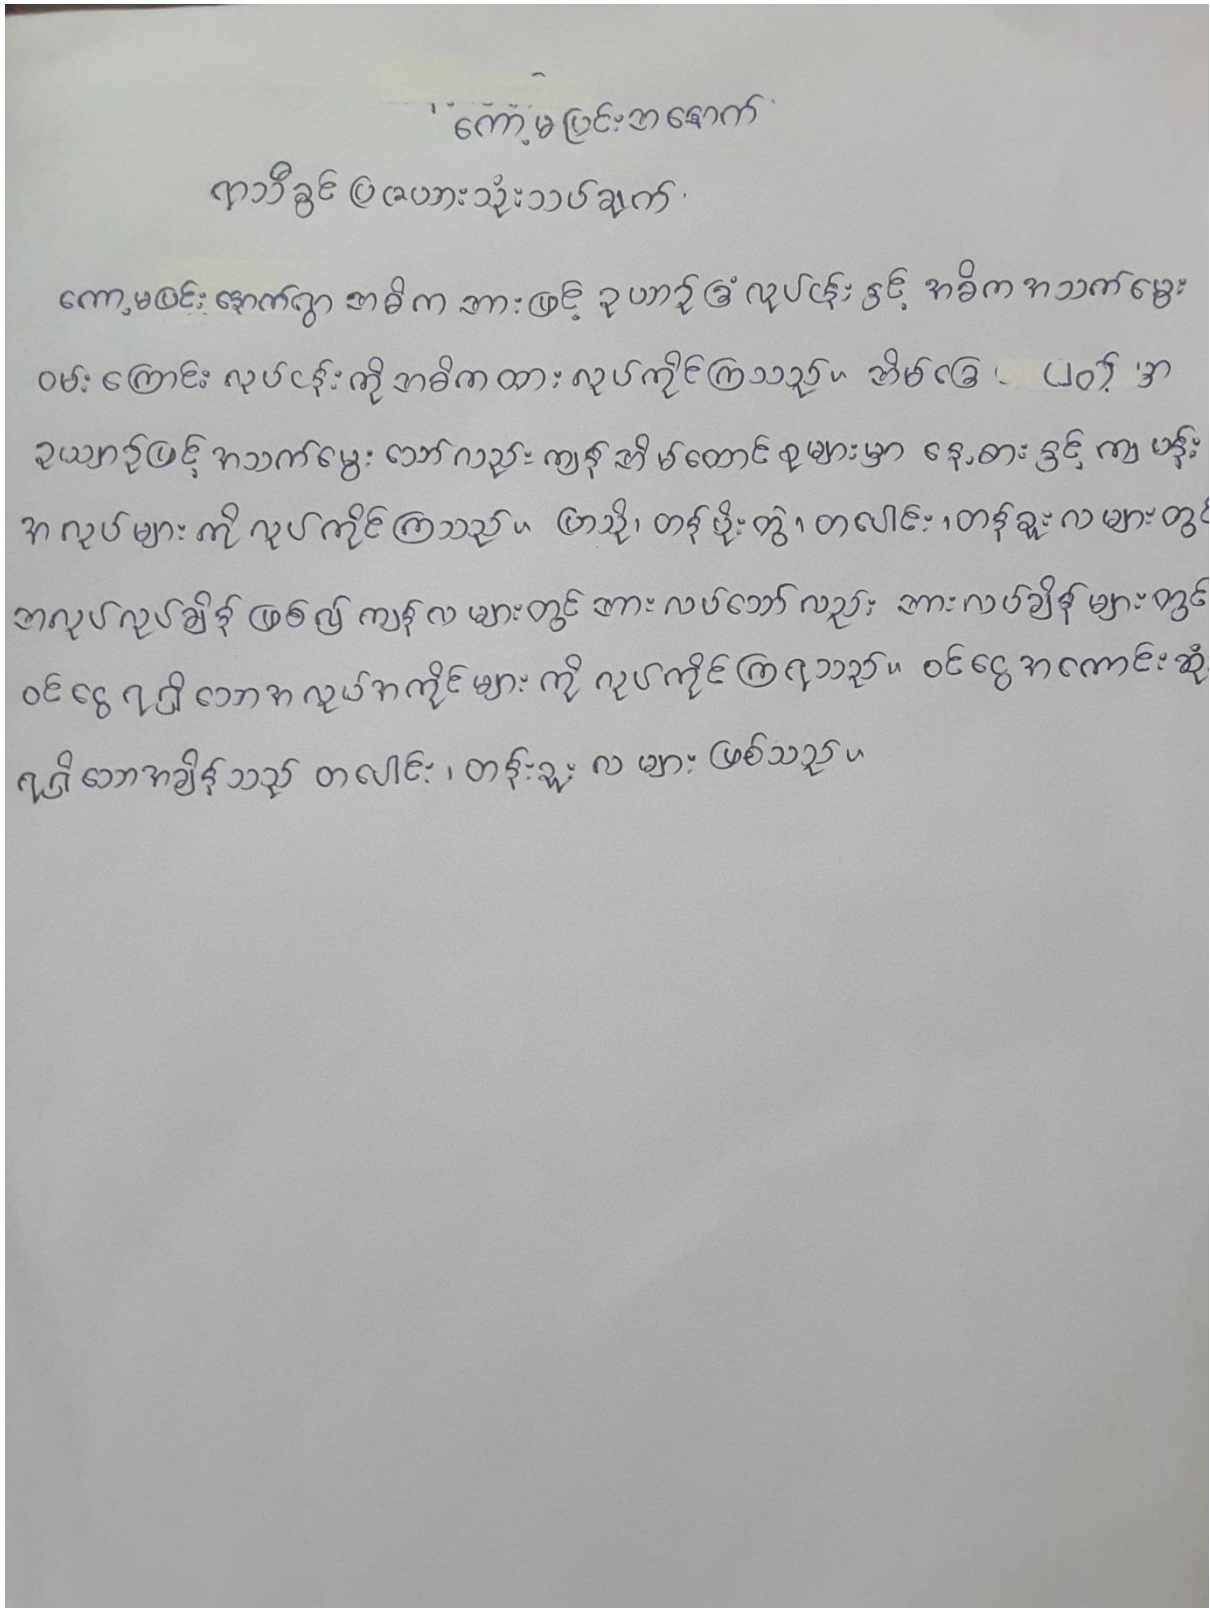 ကော့မပြင်းအနောက်
ရာသီခွင်ပြဇယားသုံးသပ်ချက်
ကော့မပြင်းနောက်ရွာ အဓိကအားဖြင့် ဥယာဉ်ခြံလုပ်ငန်းနှင့် အဓိကအသက်မွေး
ဝမ်းကြောင်းလုပ်ငန်းကို အဓိကထားလုပ်ကိုင်ကြသည်။ အိမ်ခြေ
ဥယျာဉ်ဖြင့် အသက်မွေးသော်လည်း ကျန်အိမ်ထောင်စုများမှာ နေ့စားနှင့် ကျပန်း
အလုပ်များကိုလုပ်ကိုင်ကြသည်။ ပြာသို၊ တန်ဖိုးတွဲ၊ တပေါင်း၊ တန်ခူးလများတွင်
အလုပ်လုပ်ချိန်ဖြစ်၍ ကျန်လများတွင် အားလပ်သော်လည်း အားလပ်ချိန်များတွင်
ဝင်ငွေရရှိသောအလုပ်အကိုင်များကို လုပ်ကိုင်ကြရသည်။ ဝင်ငွေအကောင်းဆုံး
ရရှိသောအချိန်သည် တပေါင်း၊ တန်းခူး လများ ဖြစ်သည်။